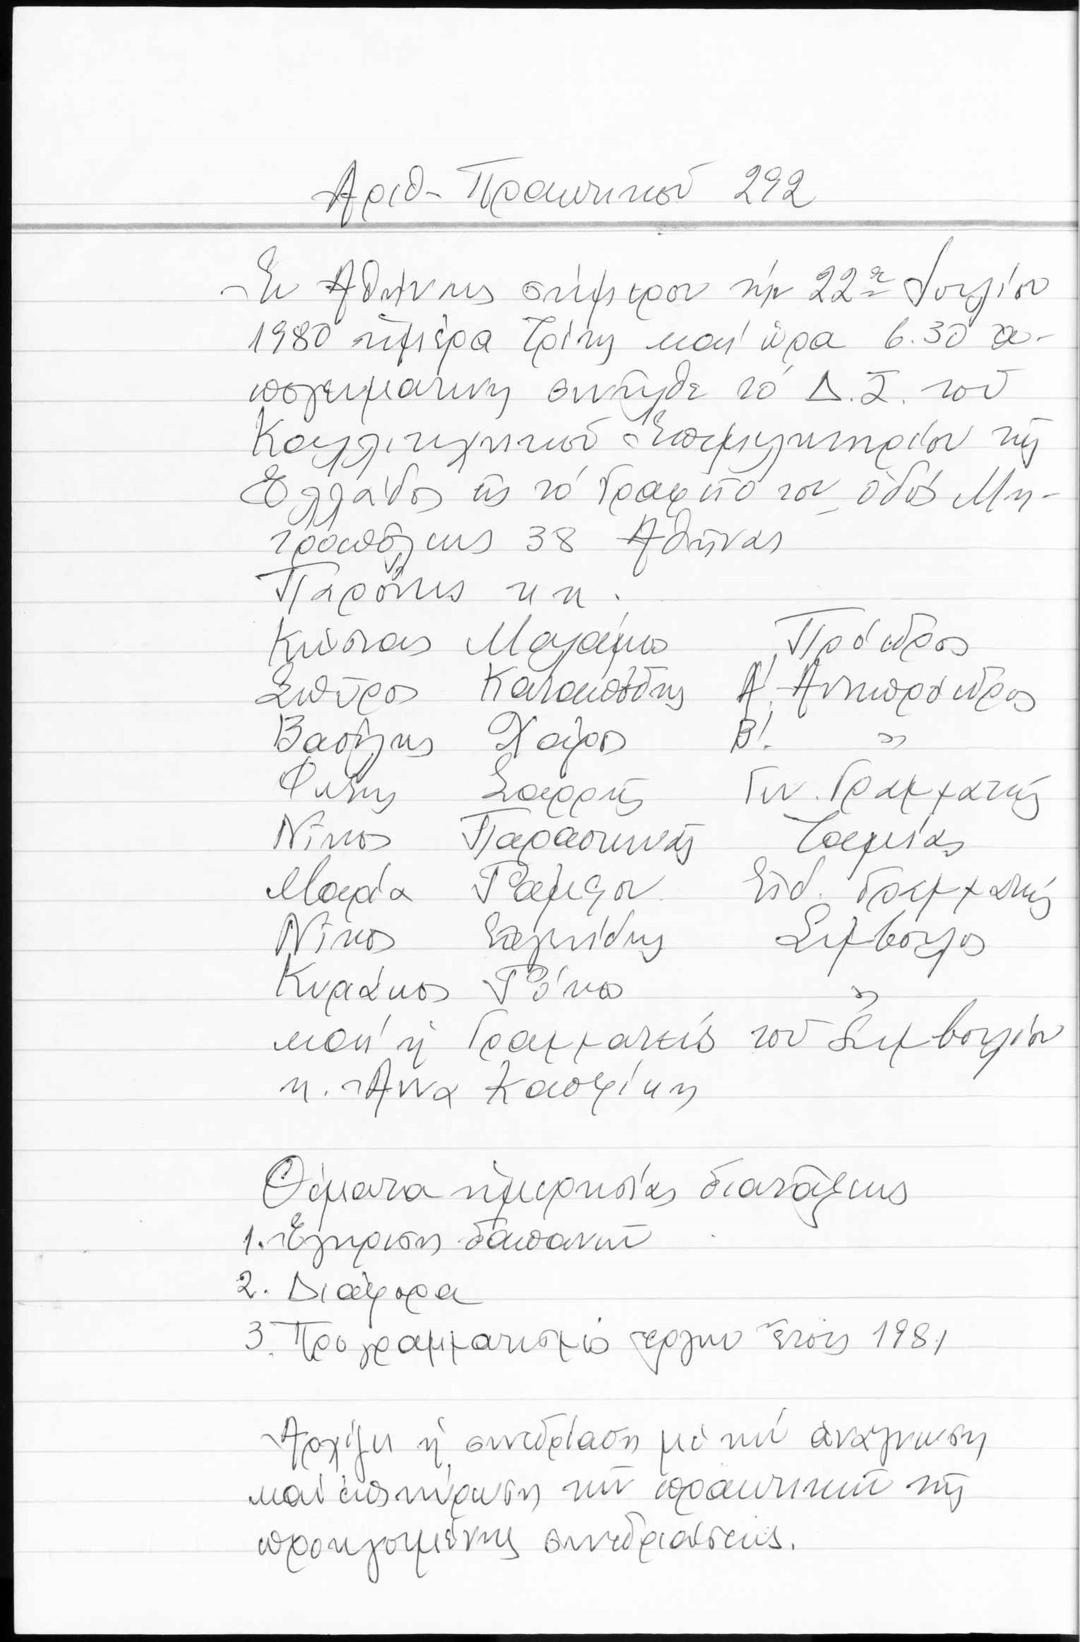 Αριθ- Πρακτικοῦ 292
Ἐν Ἀθήναις σήμερον τήν 22αν Ἰουλίου
1980 ἡμέρα Τρίτη καί ὥρα 6.30 ἀ-
πογευματινή συνῆλθε τό Δ.Σ. τοῦ
Καλλιτεχνικοῦ Ἐπιμελητηρίου τῆς
Ἑλλάδος εἰς τό Γραφεῖο του ὁδός Μη-
τροπόλεως 38 Ἀθήνας
Παρόντες κ κ.
Κώστας Μαλάμος Πρόεδρος
Σπῦρος Καταπόδης Α! Ἀντιπρόεδρος
Βασίλης Χάρος Β!. »
Φώτης Σαρρῆς Γεν. Γραμματεύς
Νῖκος Παρασκευάς Ταμίας
Μαρία Ράμφου Εἰδ. Γραμματεύς
Νῖκος Σύμβουλος
Κυριάκος Ρόκος »
καί ἡ Γραμματεύς τοῦ Συμβουλίου
κ. Ἄννα
Θέματα ἡμερησίας διατάξεως
1. Ἔγκρισις δαπανῶν
2. Διάφορα
3. Προγραμματισμός ἔργων ἔτους 1981
Ἀρχίζει ἡ συνεδρίαση μέ τήν ἀνάγνωση
καί ἐπικύρωση τῶν πρακτικῶν τῆς
προηγουμένης συνεδριάσεως.